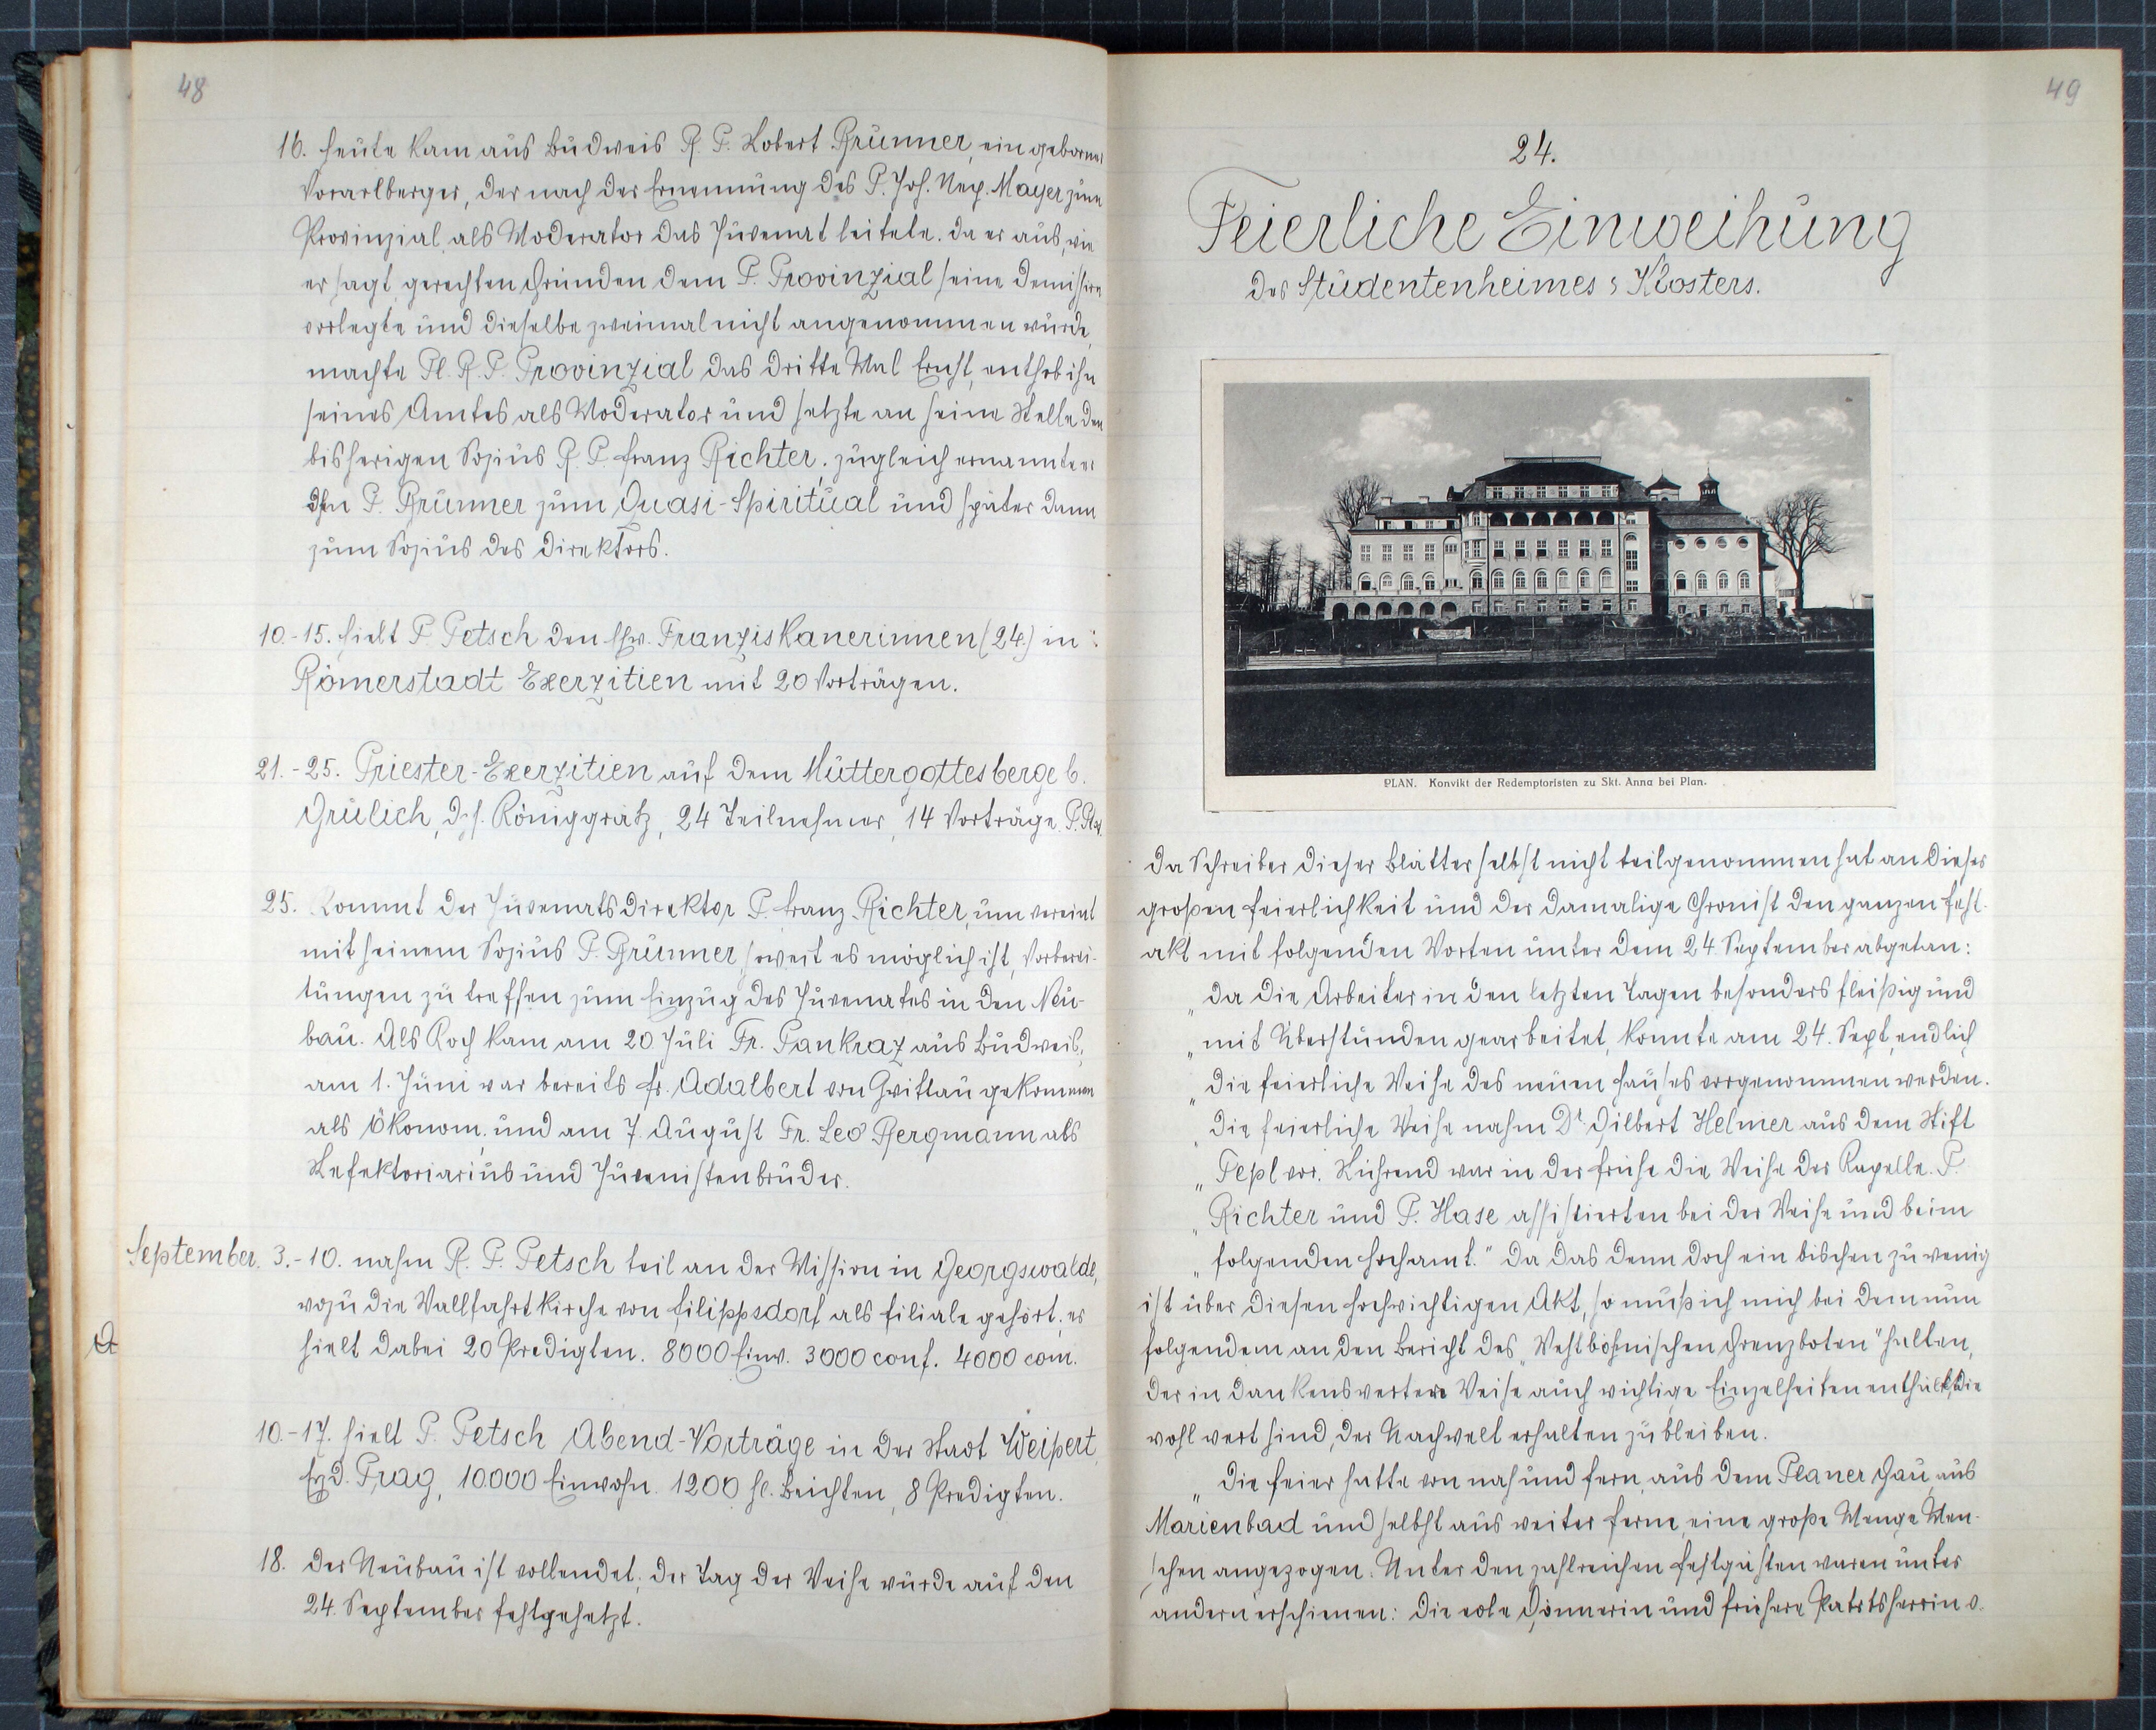 48
16. Heute kam aus Budweis R. P. Robert Brunner, ein geborner
Vorarlberger, der nach der Ernennung des P. Joh. Nep. Mayer zum
Provinzial, als Moderator das Juvenat leitete. Da er aus, wie
er sagt, gerechten Gründen dem P. Provinzial seine Demission
vorlegte und dieselbe zweimal nicht angenommen wurde,
machte Pl. R. P. Provinzial das dritte Mal Ernst, enthob ihn
seines Amtes als Moderator und setzte an seine Stelle den
bisherigen Sozius R. P. Franz Richter, zugleich ernannte er
den P. Brunner zum Quasi-Spiritual und später dann
zum Sozius des Direktors.
10.-15. hielt P. Petsch den Schw. Franziskanerinnen (24.) in
Römerstadt Exerzitien mit 20 Vorträgen.
21.-25. Priester-Exerzitien auf dem Muttergottesberge b.
Grulich, Dz. Königgrätz, 24 Teilnehmer, 14 Vorträge.
25. Kommt der Juvenatsdirektor P. Franz Richter, um vereint
mit seinem Sozius P. Brunner, soweit es möglich ist, Vorberei-
tungen zu treffen zum Einzug des Juvenates in den Neu-
bau. Als Koch kam am 20 Juli Fr. Pankraz aus Budweis,
am 1. Juni war bereits Fr. Adalbert von Zwittau gekommen
als Ökonom, und am 7. August Fr. Leo Bergmann als
Refektoriarius und Juvenistenbruder.
September. 3.-10. nahm R. P. Petsch teil an der Mission in Georgswalde,
wozu die Wallfahrtkirche von Filippsdorf als Filiale gehört; er
hielt dabei 20 Predigten. 8000 Einw. 3000 conf. 4000 com.
10.-17. hielt P. Petsch Abend-Vorträge in der Stadt Weipert,
Erzd. Prag, 10.000 Einwohn. 1200 hl. Beichten, 8 Predigten.
18. Der Neubau ist vollendet; der Tag der Weihe wurde auf den
24. September festgesetzt.
49
24.
Feierliche Einweihung
des Studentenheimes & Klosters.
PLAN. Konvikt der Redemptoristen zu Skt. Anna bei Plan.
Da Schreiber dieser Blätter selbst nicht teilgenommen hat an dieser
großen Feierlichkeit und der damalige Chronist den ganzen Fest-
akt mit folgenden Worten unter dem 24. September abgetan:
„Da die Arbeiter in den letzten Tagen besonders fleißig und
„mit Überstunden gearbeitet, konnte am 24. Sept. endlich
„die feierliche Weihe des neuen Hauses vorgenommen werden.
„Die feierliche Weihe nahm Dr. Gilbert Helmer aus dem Stift
„Tepl vor. Rührend war in der Frühe die Weihe der Kapelle. P.
„Richter und P. Hase assistierten bei der Weihe und beim
„folgenden Hochamt." Da das denn doch ein bischen zu wenig
ist über diesen hochwichtigen Akt, so muß ich mich bei dem nun
folgendem an den Bericht des „Westböhmischen Grenzboten" halten,
der in dankenswerter Weise auch wichtige Einzelheiten enthält, die
wohl wert sind, der Nachwelt erhalten zu bleiben.
„Die Feier hatte von nah und fern, aus dem Planer Gau, aus
Marienbad und selbst aus weiter Ferne, eine große Menge Men-
schen angezogen. Unter den zahlreichen Festgästen waren unter
andern erschienen: Die edle Gönnerin und frühere Patrtsherrin v.